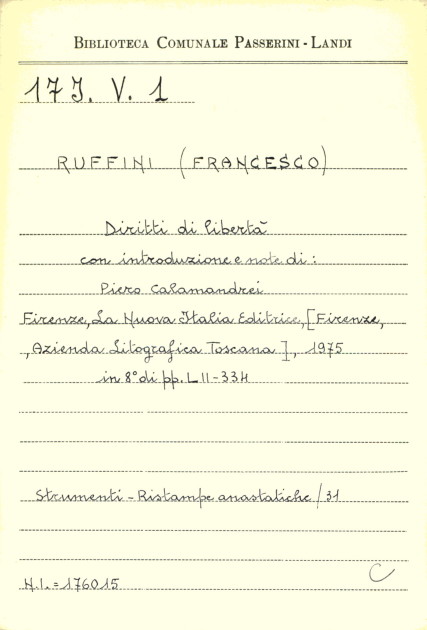 BIBLIOTECA COMUNALE PASSERINI-LANDI
17 J. V. 1
RUFFINI (FRANCESCO)
Diritti di libertà
con introduzione e note di:
Piero Calamandrei
Firenze, La Nuova Italia Editrice, [Firenze,
, Azienda Litografica Toscana], 1975
in 8° di pp. LII-334
Strumenti - Ristampe anastatiche / 31
N.I. = 176015
C